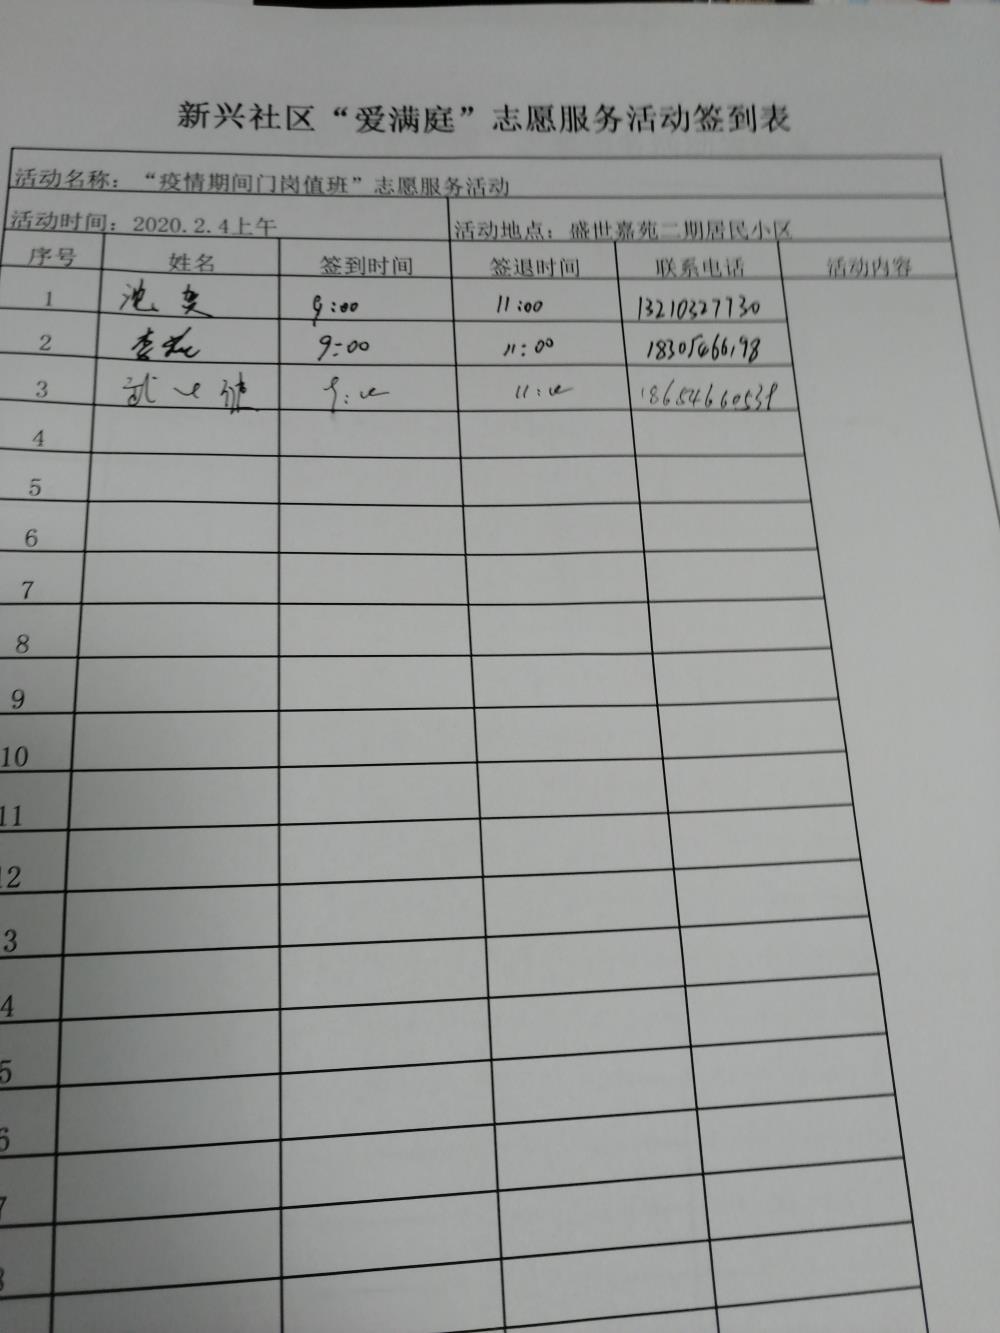 新兴社区“爱满庭”志愿服务活动签到表
活动名称：“疫情期间门岗值班”志愿服务活动
活动时间：2020.2.4上午 活动地点：盛世嘉苑二期居民小区
序号 姓名 签到时间 签退时间 联系电话 活动内容
1 9:00 11:00 13210327730
2 李 9:00 11:00 18305466198
3 武 9:00 11:00 18654660539
4
5
6
7
8
9
10
11
12
3
4
5
6
7
8